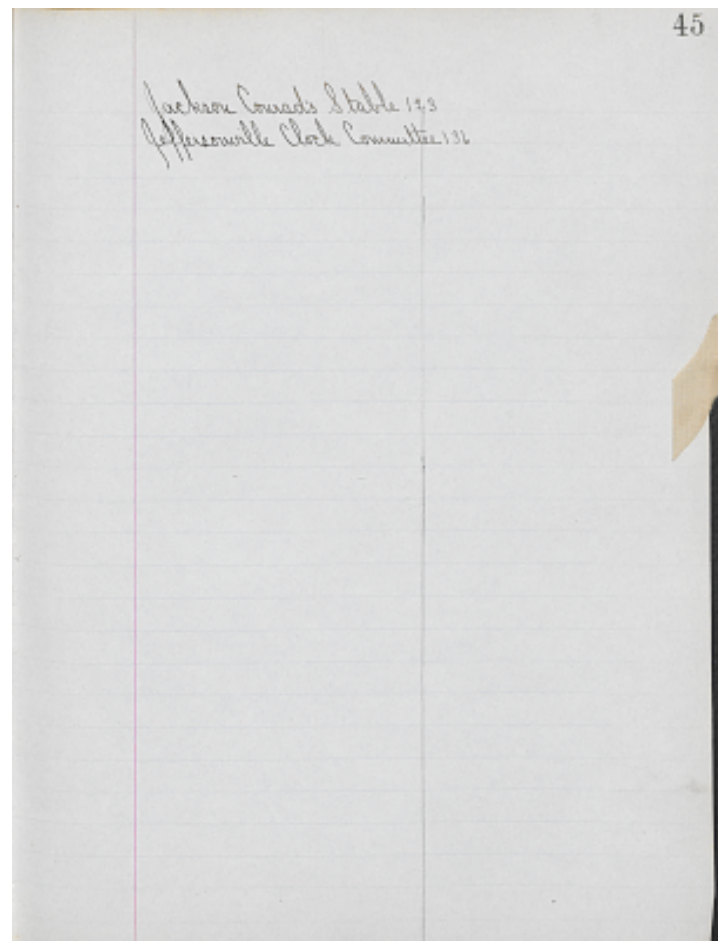 45
Jackson Conrads Stable 123
Jeffersonville Clock Committee 136